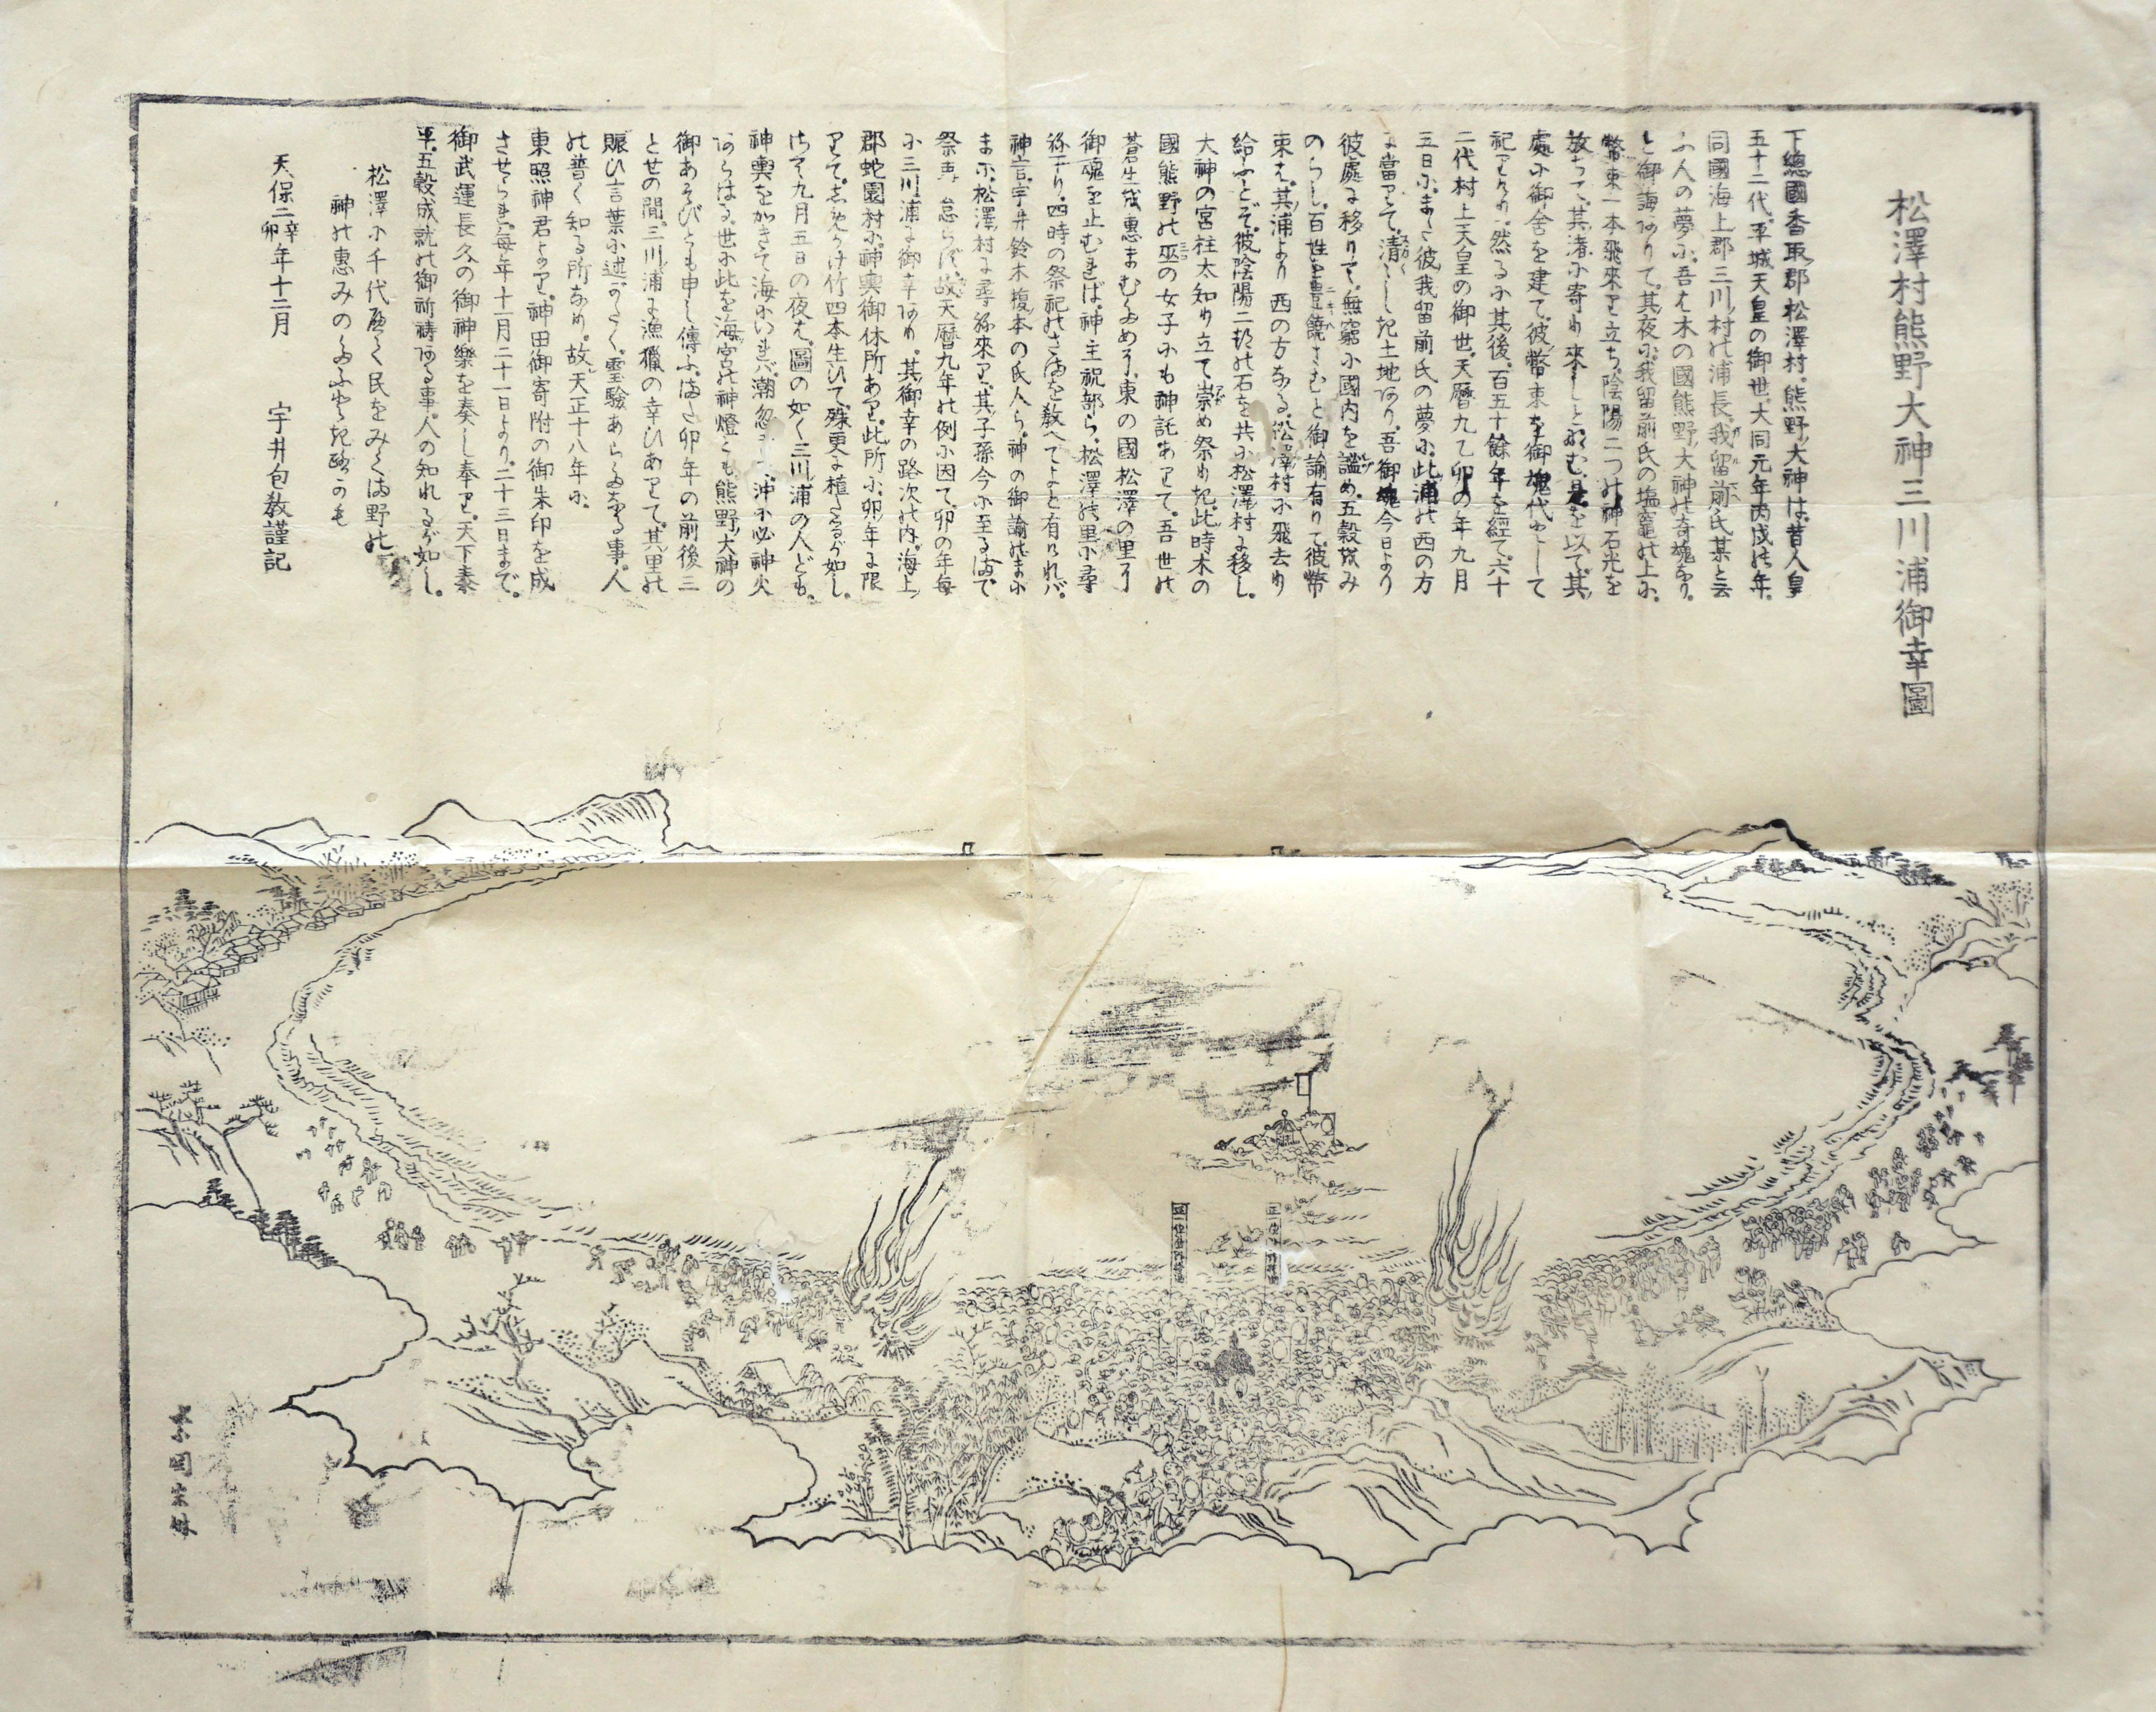 松澤村熊野大神三川浦御幸圖
下總國香取郡松澤村。熊野大神は。昔人皇
五十二代。平城天皇の御世。大同元年丙戌の年。
同國海上郡三川村の浦長。我留前氏某と云
ふ人の夢に。吾は木の國熊野大神の奇魂なり。
と御誨ありて。其夜に。我留前氏の塩竈の上に。
幣束一本飛來り立ち。陰陽二つの神石光を
放ちて。其渚に寄り來しとなむ。是を以て。其
處に御舎を建て。彼幣束を御魂代として
祀りけり。然るに其後。百五十餘年を經て。六十
二代村上天皇の御世。天暦九乙卯の年九月
五日に。また彼我留前氏の夢に。此浦の西の方
に當りて。清々しき土地あり。吾御魂今日より
彼處に移りて。無窮に國内を謐め。五穀をみ
のらし。百姓を豊饒さむと御諭有りて。彼幣
束は。其浦より西の方なる。松澤村に飛去り
給ふとぞ。彼陰陽二形の石を共に松澤村に移し。
大神の宮柱太知り立て崇め祭りき。此時木の
國熊野の巫の女子にも神託ありて。吾世の
蒼生を惠まむために。東の國松澤の里に
御魂を止むれば。神主祝部ら。松澤の里に尋
ね下り。四時の祭祀のさまを敎へてよと有ければ。
神言。宇井鈴木榎本の氏人ら。神の御諭のまに
まに。松澤村に尋ね來り。其子孫今に至るまで
祭事怠らず。故天暦九年の例に因て。卯の年毎
に三川浦に御幸あり。其御幸の路次の内。海上
郡蛇園村に。神輿御休所あり。此所に。卯年に限
りて。しめかけ竹四本生ひて。殊更に植たるが如し。
さて九月五日の夜は。圖の如く三川浦の人ども。
神輿をかきて海にいれば。潮忽 沖に必神火
あらはる。世に此を海宮の神燈とも。熊野大神の
御あそびとも申し傳ふ。また卯年の前後三
とせの間。三川浦に漁獵の幸ひありて。其里の
賑ひ言葉に述がたく。霊驗あらたなる事。人
の普く知る所なり。故天正十八年に。
東照神君より。神田御寄附の御朱印を成
させられ。毎年十一月二十一日より。二十三日まで。
御武運長久の御神樂を奏し奉り。天下泰
平。五穀成就の御祈祷ある事。人の知れるが如し。
松澤に千代 く民をみくま野の
神の惠みの かも
天保二辛卯年十二月　宇井包敎謹記